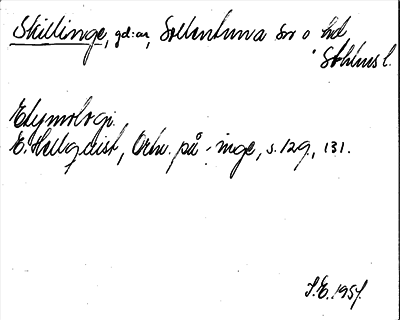 Skillinge, gd:ar, Sollentuna sn o hd,
Sthlms l.
Etymologi.
E. Hellquist, Ortn. på -inge, s. 129, 131.
I.E. 1957.